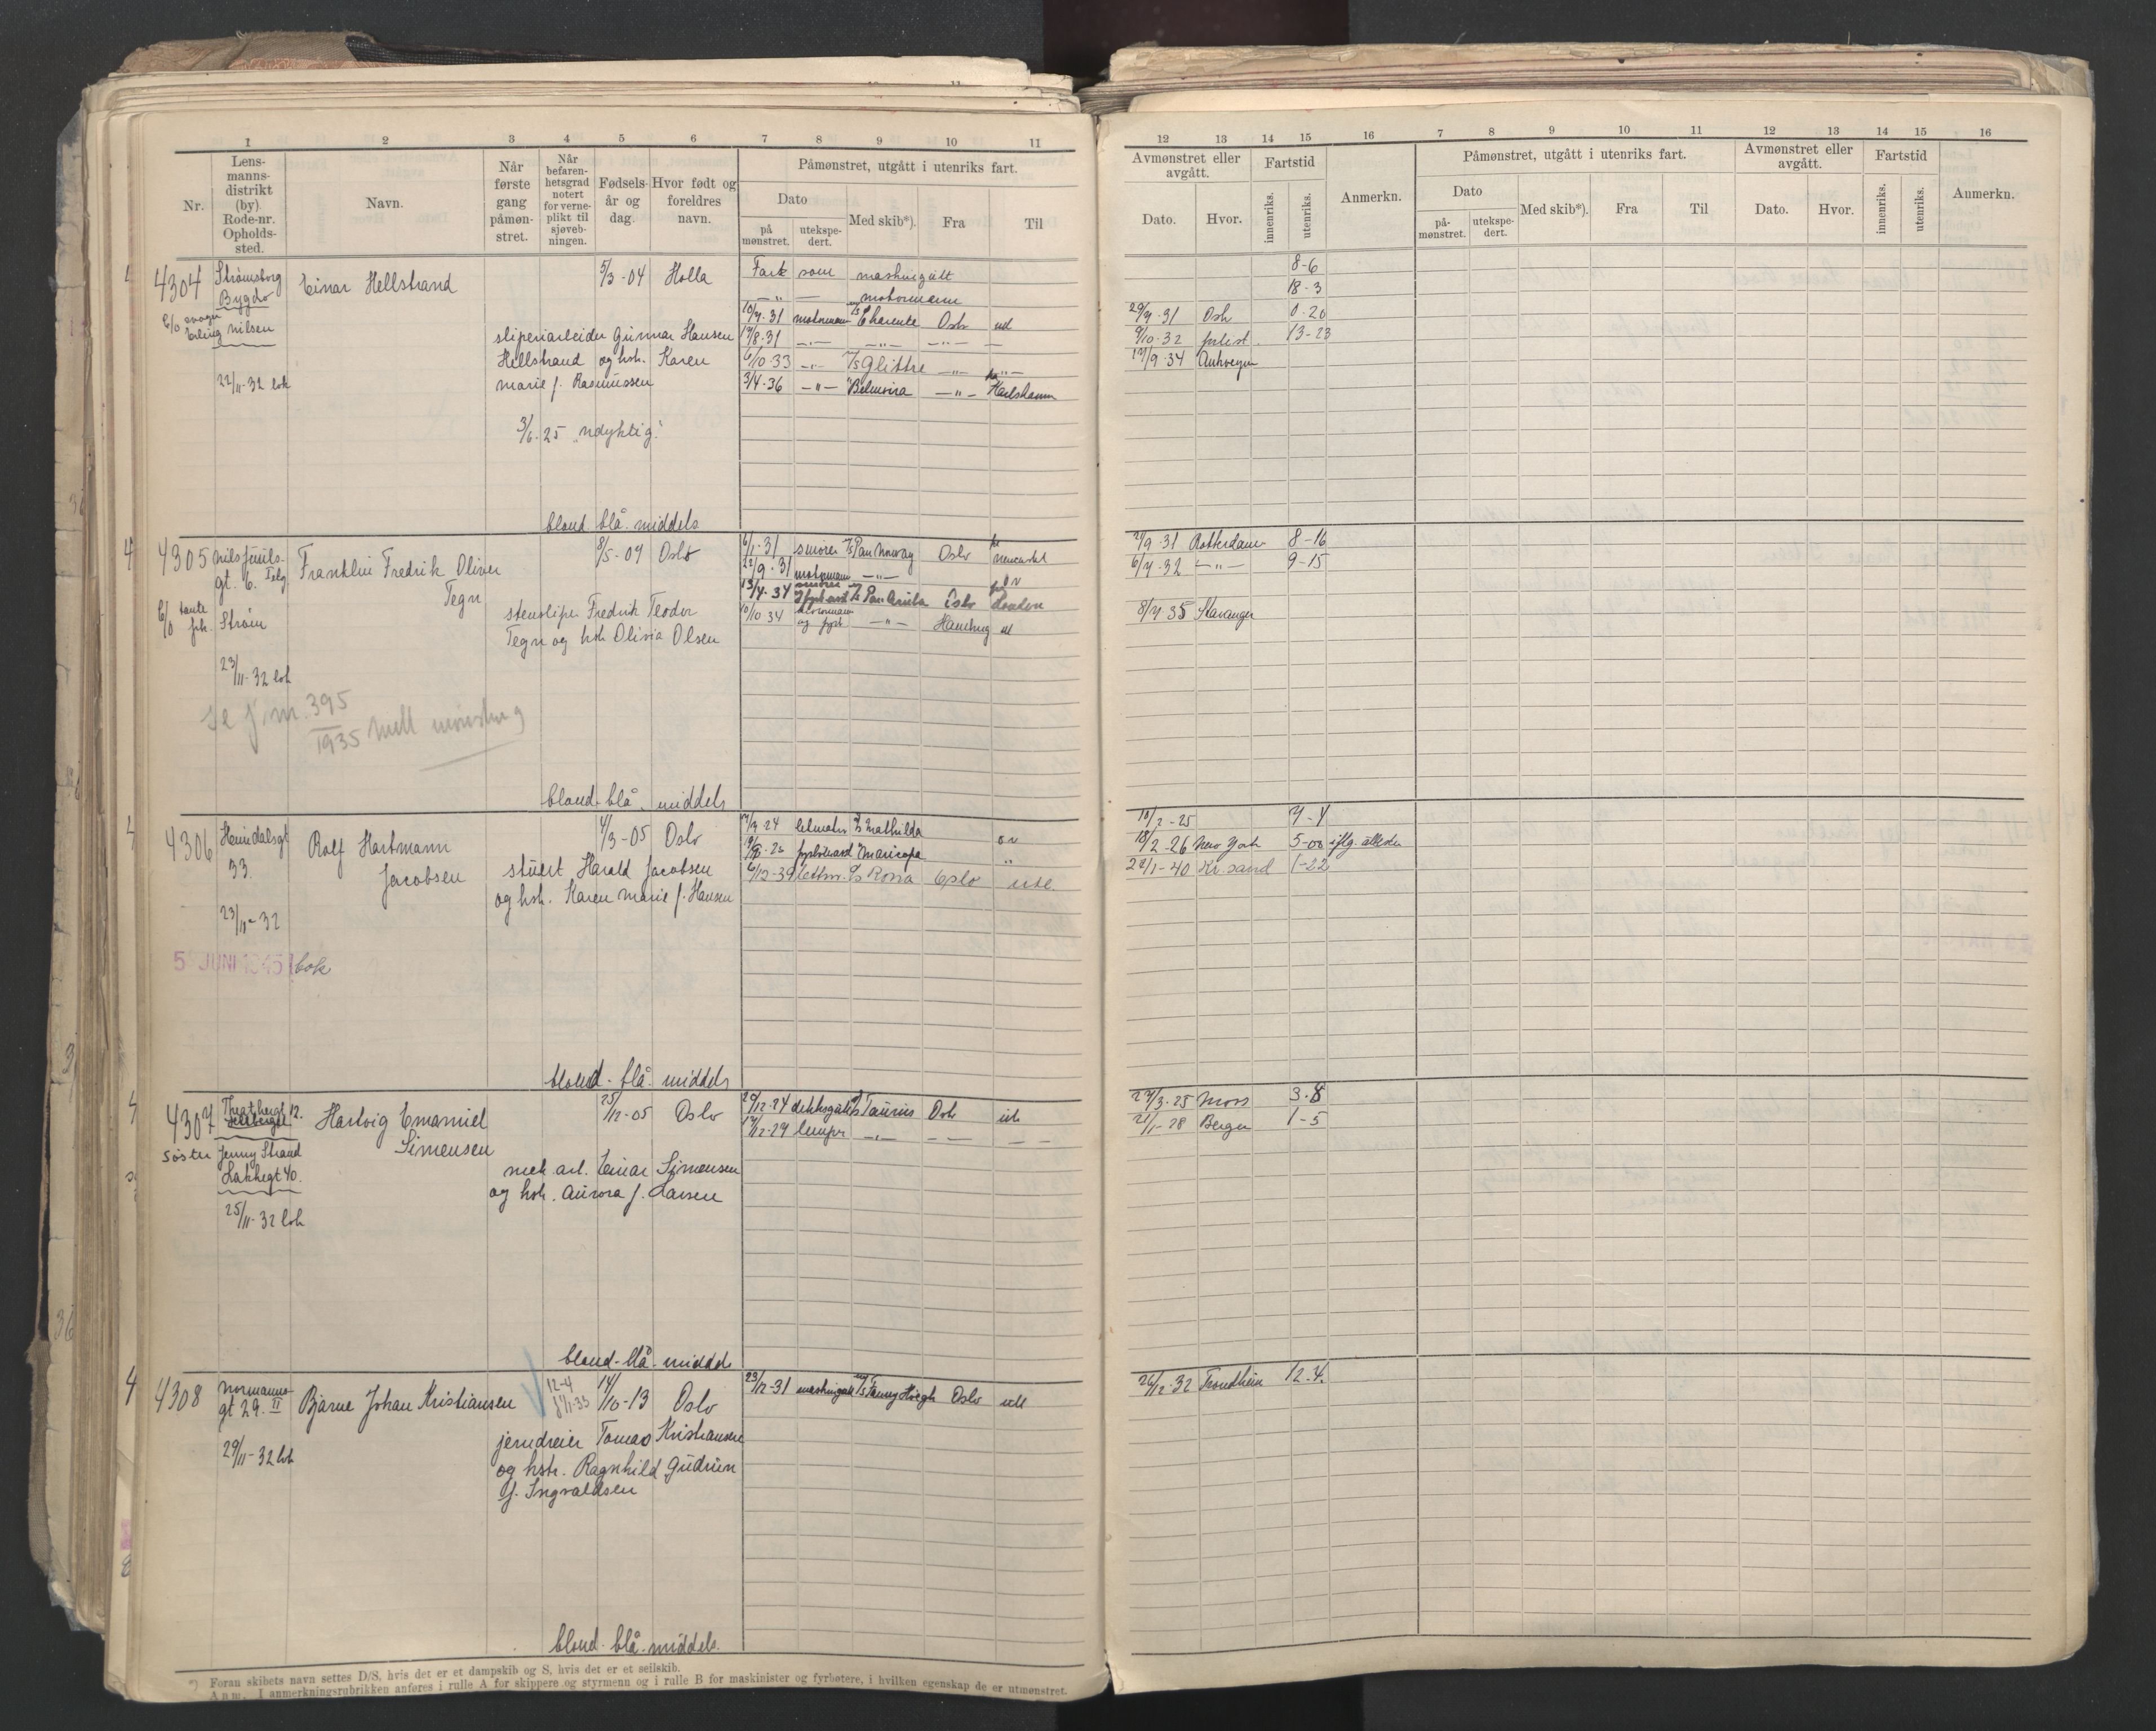 1 2 3 4 5 6 7 8 9 10 11
Nr.
Lens-
manns-
distrikt
(by).
Rode-nr.
Opholds-
sted.
Navn.
Når
første
gang
påmøn-
stret.
Når
befaren-
hetsgrad
notert
for verne-
plikt til
sjøveb-
ningen.
Fødsels-
år og
dag.
Hvor født og
foreldres
navn.
Påmønstret, utgått i utenriks fart.
Dato
på
mønstret.
utekspe-
dert.
Med skib*).
Fra
Til
4304 Strømsborg Einar Hellstrand 5/3-04 Holla
Bygdø
c/o
Erling Nilsen
22/11-32
Gunnar Hansen
Hellstrand og hstr. Karen
Marie f. Rasmussen
3/6.25 "Udyktig"
som
motormann
10/7.31 motormann Charente Oslo ut
17/8.31 — " — — " — — " —
6/10.33 — " — M/S Glittre — " — — " —
3/4.36 — " — Belmoira — " — Karlshamn
blond. blå. middels
4305 Nils Juuls- Franklin Fredrik Oliver 8/5-09 Oslo
gt. 6. Tegn
c/o tante Strøm
23/11-32
Fredrik Teodor
Tegn og hstr Olivia Olsen
6/1.31 smører M/S Pan Norway Oslo
22/9.31 motormann — " —
13/4.34 Pan Aruba Oslo London
10/10.34 motormann — " — Hamburg ut
395
1935
blond. blå. middels
4306 Heimdalsgt Rolf Hartmann 4/3-05 Oslo
33. Jacobsen
23/11-32
stuert Harald Jacobsen
og hstr. Karen Marie f. Hansen
Mathilda
Maricopa
6/12-39 lettm. D/S Rosa Oslo utl.
5 JUNI 1945 bok
blond. blå. middels
4307 12. Hartvig Emanuel 25/12-05 Oslo
Simensen
søster Jenny Strand
Lakkegt 40.
25/11-32
mek. arb. Einar Simensen
og hstr. Aurora f. Larsen
29/12-24 dekksgutt Taurus Oslo
lemper — " — — — — —
blond. blå. middels
4308 Normanns- Bjarne Johan Kristiansen 12-4 14/10-13 Oslo
gt 29. II
29/11-32
jerndreier Tomas Kristiansen
og hstr. Ragnhild Gudrun
f. Ingvaldsen
23/12-31 maskingutt M/S Fanny Høegh Oslo utl
blond. blå. middels.
*) Foran skibets navn settes D/S, hvis det er et dampskib og S, hvis det er et seilskib.
Anm. I anmerkningsrubrikken anføres i rulle A for skippere og styrmenn og i rulle B for maskinister og fyrbøtere, i hvilken egenskap de er utmønstret.
12 13 14 15 16 7 8 9 10 11 12 13 14 15 16
Avmønstret eller
avgått.
Dato. Hvor.
Fartstid
innenriks.
utenriks.
Anmerkn.
Påmønstret, utgått i utenriks fart.
Dato
på-
mønstret.
utekspe-
dert.
Med skib*).
Fra
Til
Avmønstret eller
avgått.
Dato. Hvor.
Fartstid
innenriks.
utenriks.
Anmerkn.
8-6
18-3
29/7.31 Oslo 0-20
9/10.32 13-23
17/9.34 Antwerpen
2/9.31 Rotterdam 8-16
6/7.32 — " — 9-15
8/7.35 Stavanger
10/2-25 7-4
18/2-26 New York 5-00
1-40 Kr.sand 1-22
27/3.25 Moss 3-8
21/1-28 Bergen 1-5
26/12.32 Trondheim 12-4.